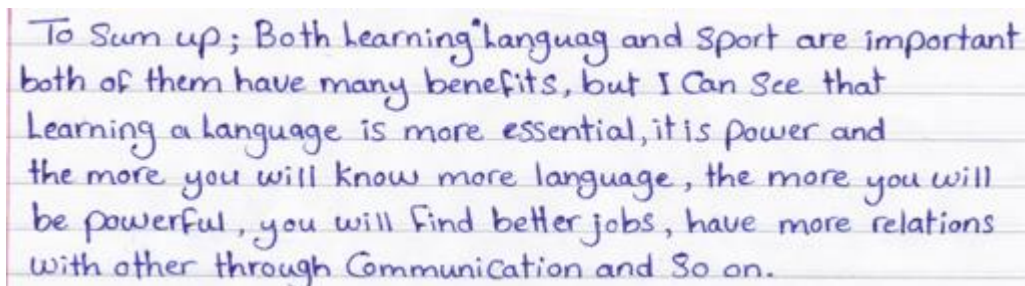 To Sum up; Both Learning "Languag and Sport are important
both of them have many benefits, but I Can See that
Learning a Language is more essential, it is Power and
the more you will know more language, the more you will
be powerful, you will find better jobs, have more relations
with other through Communication and So on.